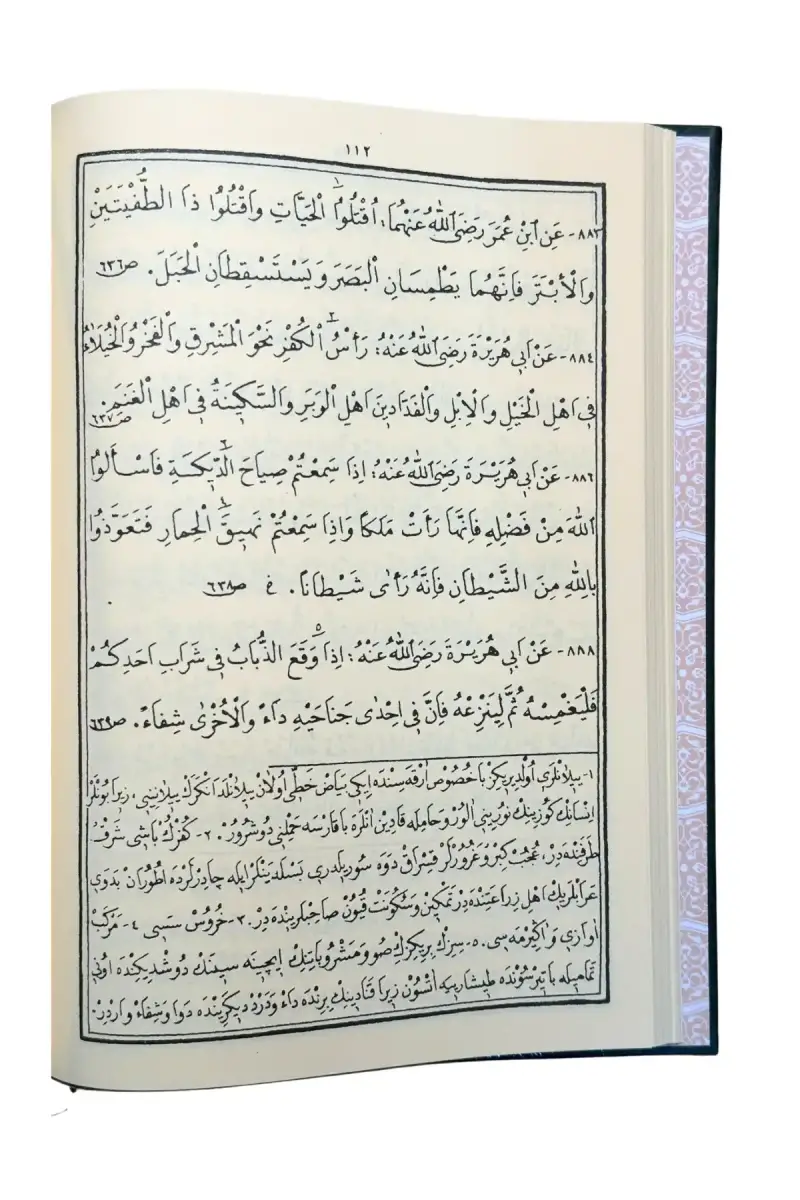 ١١٢
٨٨٣- عَنِ ابْنِ عُمَرَ رَضِيَ اللّٰهُ عَنْهُمَا: اُقْتُلُوا١ الْحَيَّاتِ وَاقْتُلُوا ذَا الطُّفْيَتَيْنِ
وَالْأَبْتَرَ فَاِنَّهُمَا يَطْمِسَانِ الْبَصَرَ وَيَسْتَسْقِطَانِ الْحَبَلَ. ص٦٣٦
٨٨٤- عَنْ اَبِي هُرَيْرَةَ رَضِيَ اللّٰهُ عَنْهُ: رَأْسُ٢ الْكُفْرِ نَحْوَ الْمَشْرِقِ وَالْفَخْرُ وَالْخُيَلَاءُ
فِي اَهْلِ الْخَيْلِ وَالْاِبْلِ وَالْفَدَّادِينَ اَهْلِ الْوَبَرِ وَالسَّكِينَةُ فِي اَهْلِ الْغَنَمِ. ص٦٣٧
٨٨٦- عَنْ اَبِي هُرَيْرَةَ رَضِيَ اللّٰهُ عَنْهُ: اِذَا سَمِعْتُمْ صِيَاحَ الدِّيَكَةِ٣ فَاسْأَلُوا
اللّٰهَ مِنْ فَضْلِهِ فَاِنَّهَا رَأَتْ مَلَكًا وَاِذَا سَمِعْتُمْ نَهِيقَ٤ الْحِمَارِ فَتَعَوَّذُوا
بِاللّٰهِ مِنَ الشَّيْطَانِ فَاِنَّهُ رَاٰى شَيْطَانًا. خ ص٦٣٨
٨٨٨- عَنْ اَبِي هُرَيْرَةَ رَضِيَ اللّٰهُ عَنْهُ: اِذَا٥ وَقَعَ الذُّبَابُ فِي شَرَابِ اَحَدِكُمْ
فَلْيَغْمِسْهُ ثُمَّ لِيَنْزِعْهُ فَاِنَّ فِي اِحْدٰى جَنَاحَيْهِ دَاءً وَالْأُخْرٰى شِفَاءً. ص٦٣٩
١- ييلانلرى اولديريكز با خصوص ارقه سنده ايكى بياض خطى اولان ييلانلدا انكرك ييلانينى، زيرا بونلر
انسانك كوزينك نورينى الور و حامله قادين انلره باقارسه حملنى دوشرور. ٢- كفرك باشى شرق
طرفنده در، عجب كبر و غرورلر قسراق دوه سوريلرى بسلدينكر ايله چادرلرده اطوران بدوى
عرابلريك اهل زراعتنده در تمكين و سكونت قيون صاحبلرينده در. ٣- خروس سسى ٤- مركب
اوازى و اكيرمه سى. ٥- سزك بريكزك صو و مشروباتنك ايچينه سينك دوشديكنده اونى
تماميله باتيرسونده طيشاريه اتسون زيرا قنادينك برنده داء و درد ديكرينده دوا و شفاء واردر.